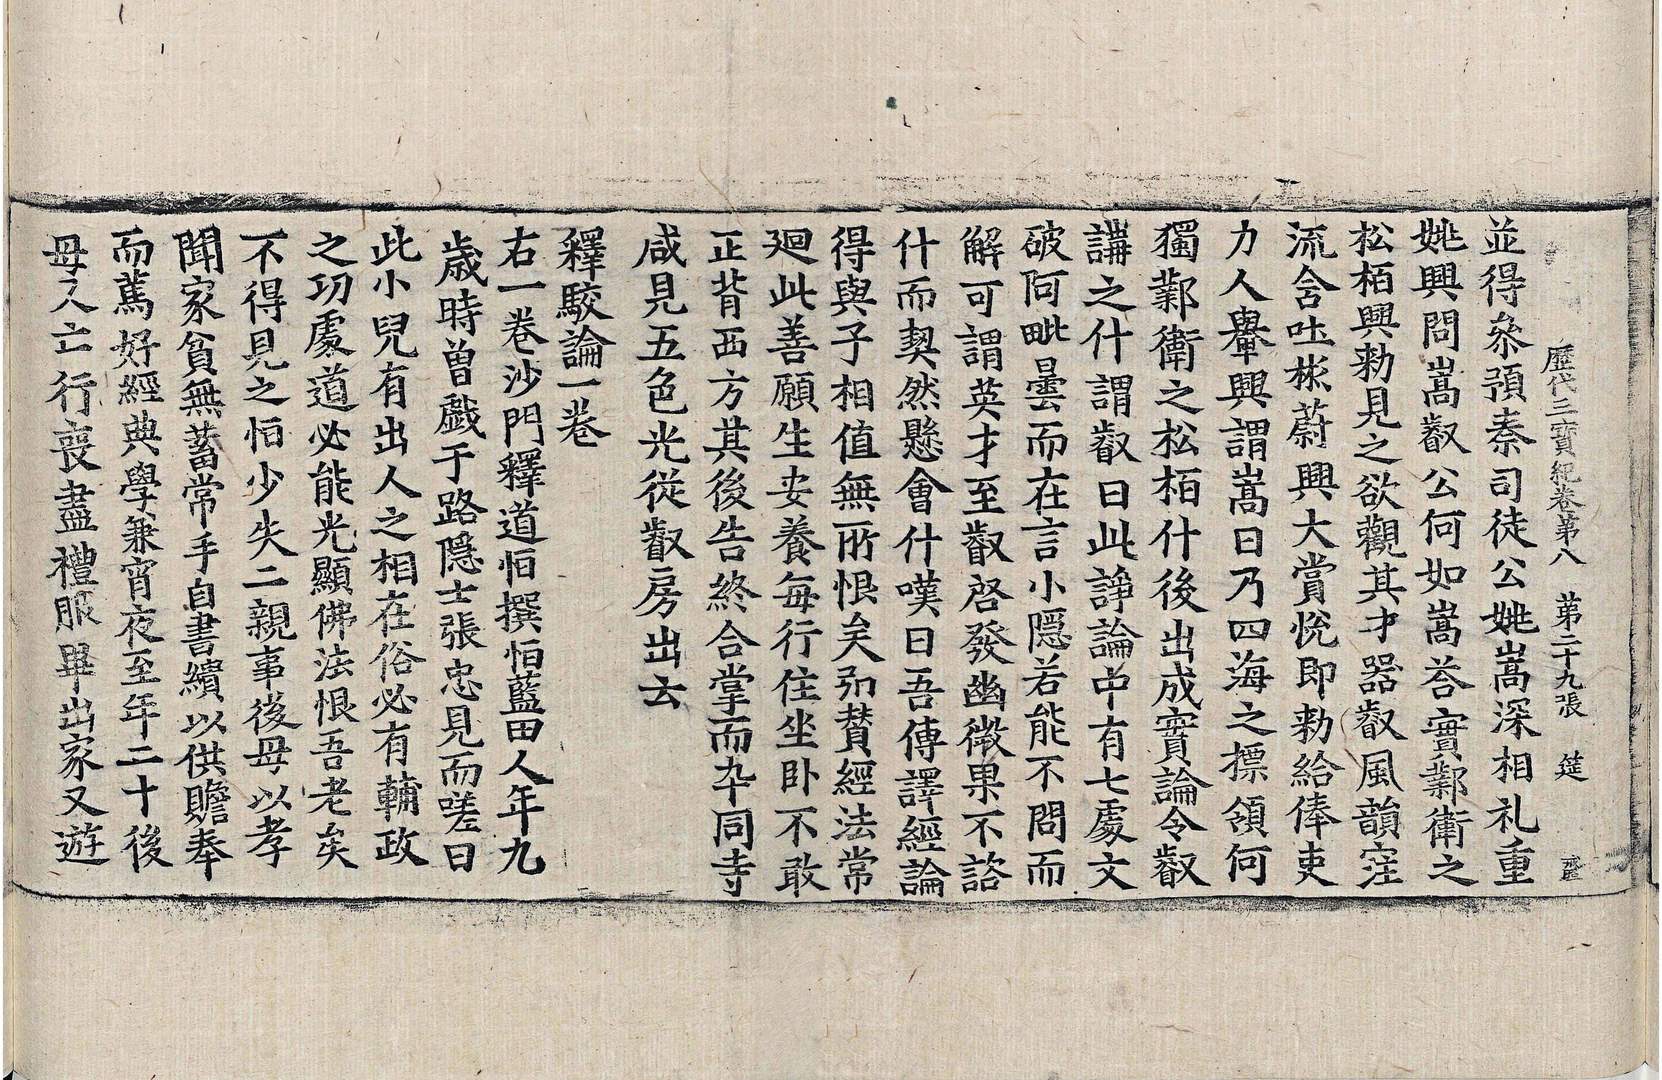 歷代三寳紀卷第八 第二十九張 筵
並得叅預秦司徒公姚嵩深相礼重
姚興問嵩叡公何如嵩荅實鄴衛之
松栢興勑見之欲觀其才器叡風韻窪
流含吐彬蔚興大賞悅即勑給俸吏
力人轝興謂嵩曰乃四海之摽領何
獨鄴衛之松栢什後出成實論令叡
講之什謂叡曰此諍論中有七處文
破阿毗曇而在言小隱若能不問而
解可謂英才至叡啓發幽微果不諮
什而契然懸會什嘆曰吾傳譯經論
得與子相值無所恨矣弼賛經法常
廻此善願生安養每行住坐卧不敢
正背西方其後告終合掌而卒同寺
咸見五色光從叡房出去
釋駮論一卷
右一卷沙門釋道恒撰恒藍田人年九
歲時曾戲于路隱士張忠見而嗟曰
此小兒有出人之相在俗必有輔政
之功處道必能光顯佛法恨吾老矣
不得見之恒少失二親事後母以孝
聞家貧無蓄常手自書繢以供贍奉
而篤好經典學兼宵夜至年二十後
母又亡行喪盡禮服畢出家又遊